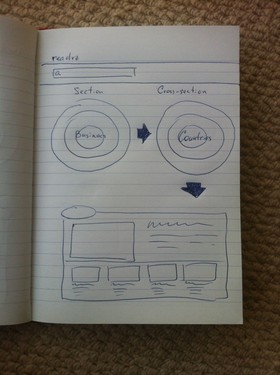 Section
Cross-section
Business
Countries